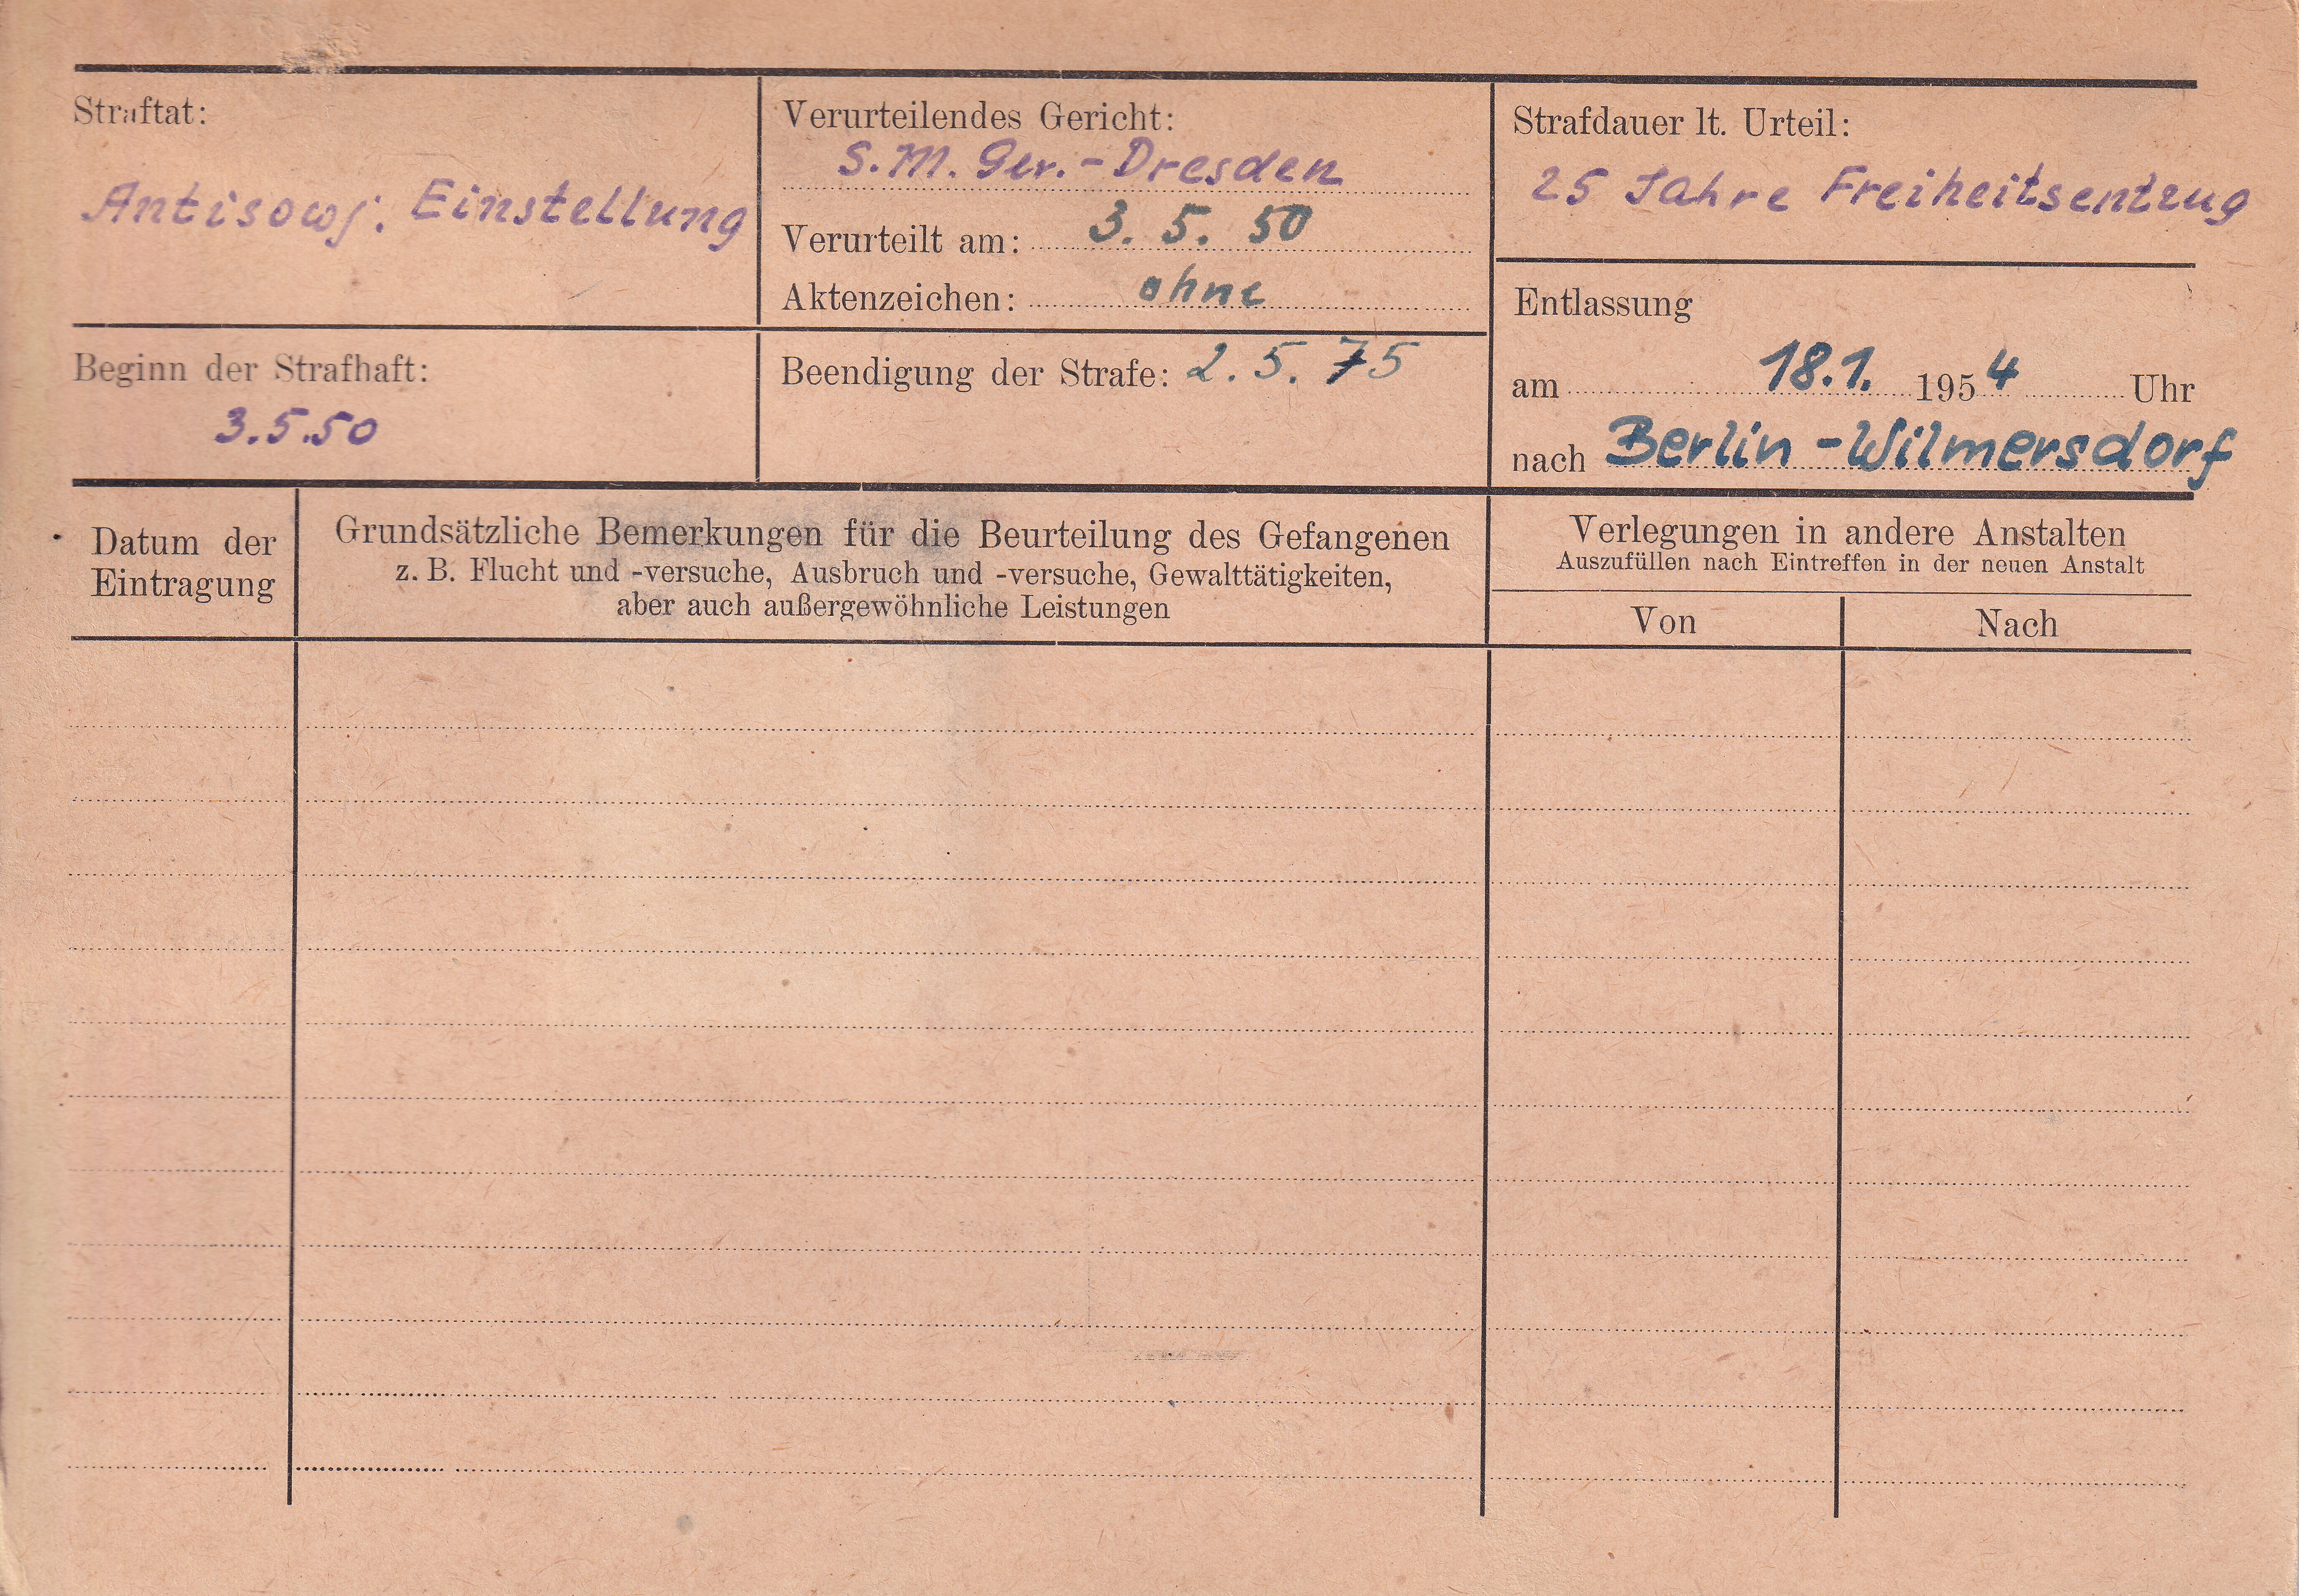 Straftat:
Antisowj. Einstellung
Verurteilendes Gericht:
S.M. Ger.-Dresden
Verurteilt am: 3. 5. 50
Aktenzeichen: ohne
Strafdauer lt. Urteil:
25 Jahre Freiheitsentzug
Beginn der Strafhaft:
3.5.50
Beendigung der Strafe: 2. 5. 75
Entlassung
am 18.1. 1954 Uhr
nach Berlin-Wilmersdorf
Datum der
Eintragung
Grundsätzliche Bemerkungen für die Beurteilung des Gefangenen
z. B. Flucht und -versuche, Ausbruch und -versuche, Gewalttätigkeiten,
aber auch außergewöhnliche Leistungen
Verlegungen in andere Anstalten
Auszufüllen nach Eintreffen in der neuen Anstalt
Von
Nach